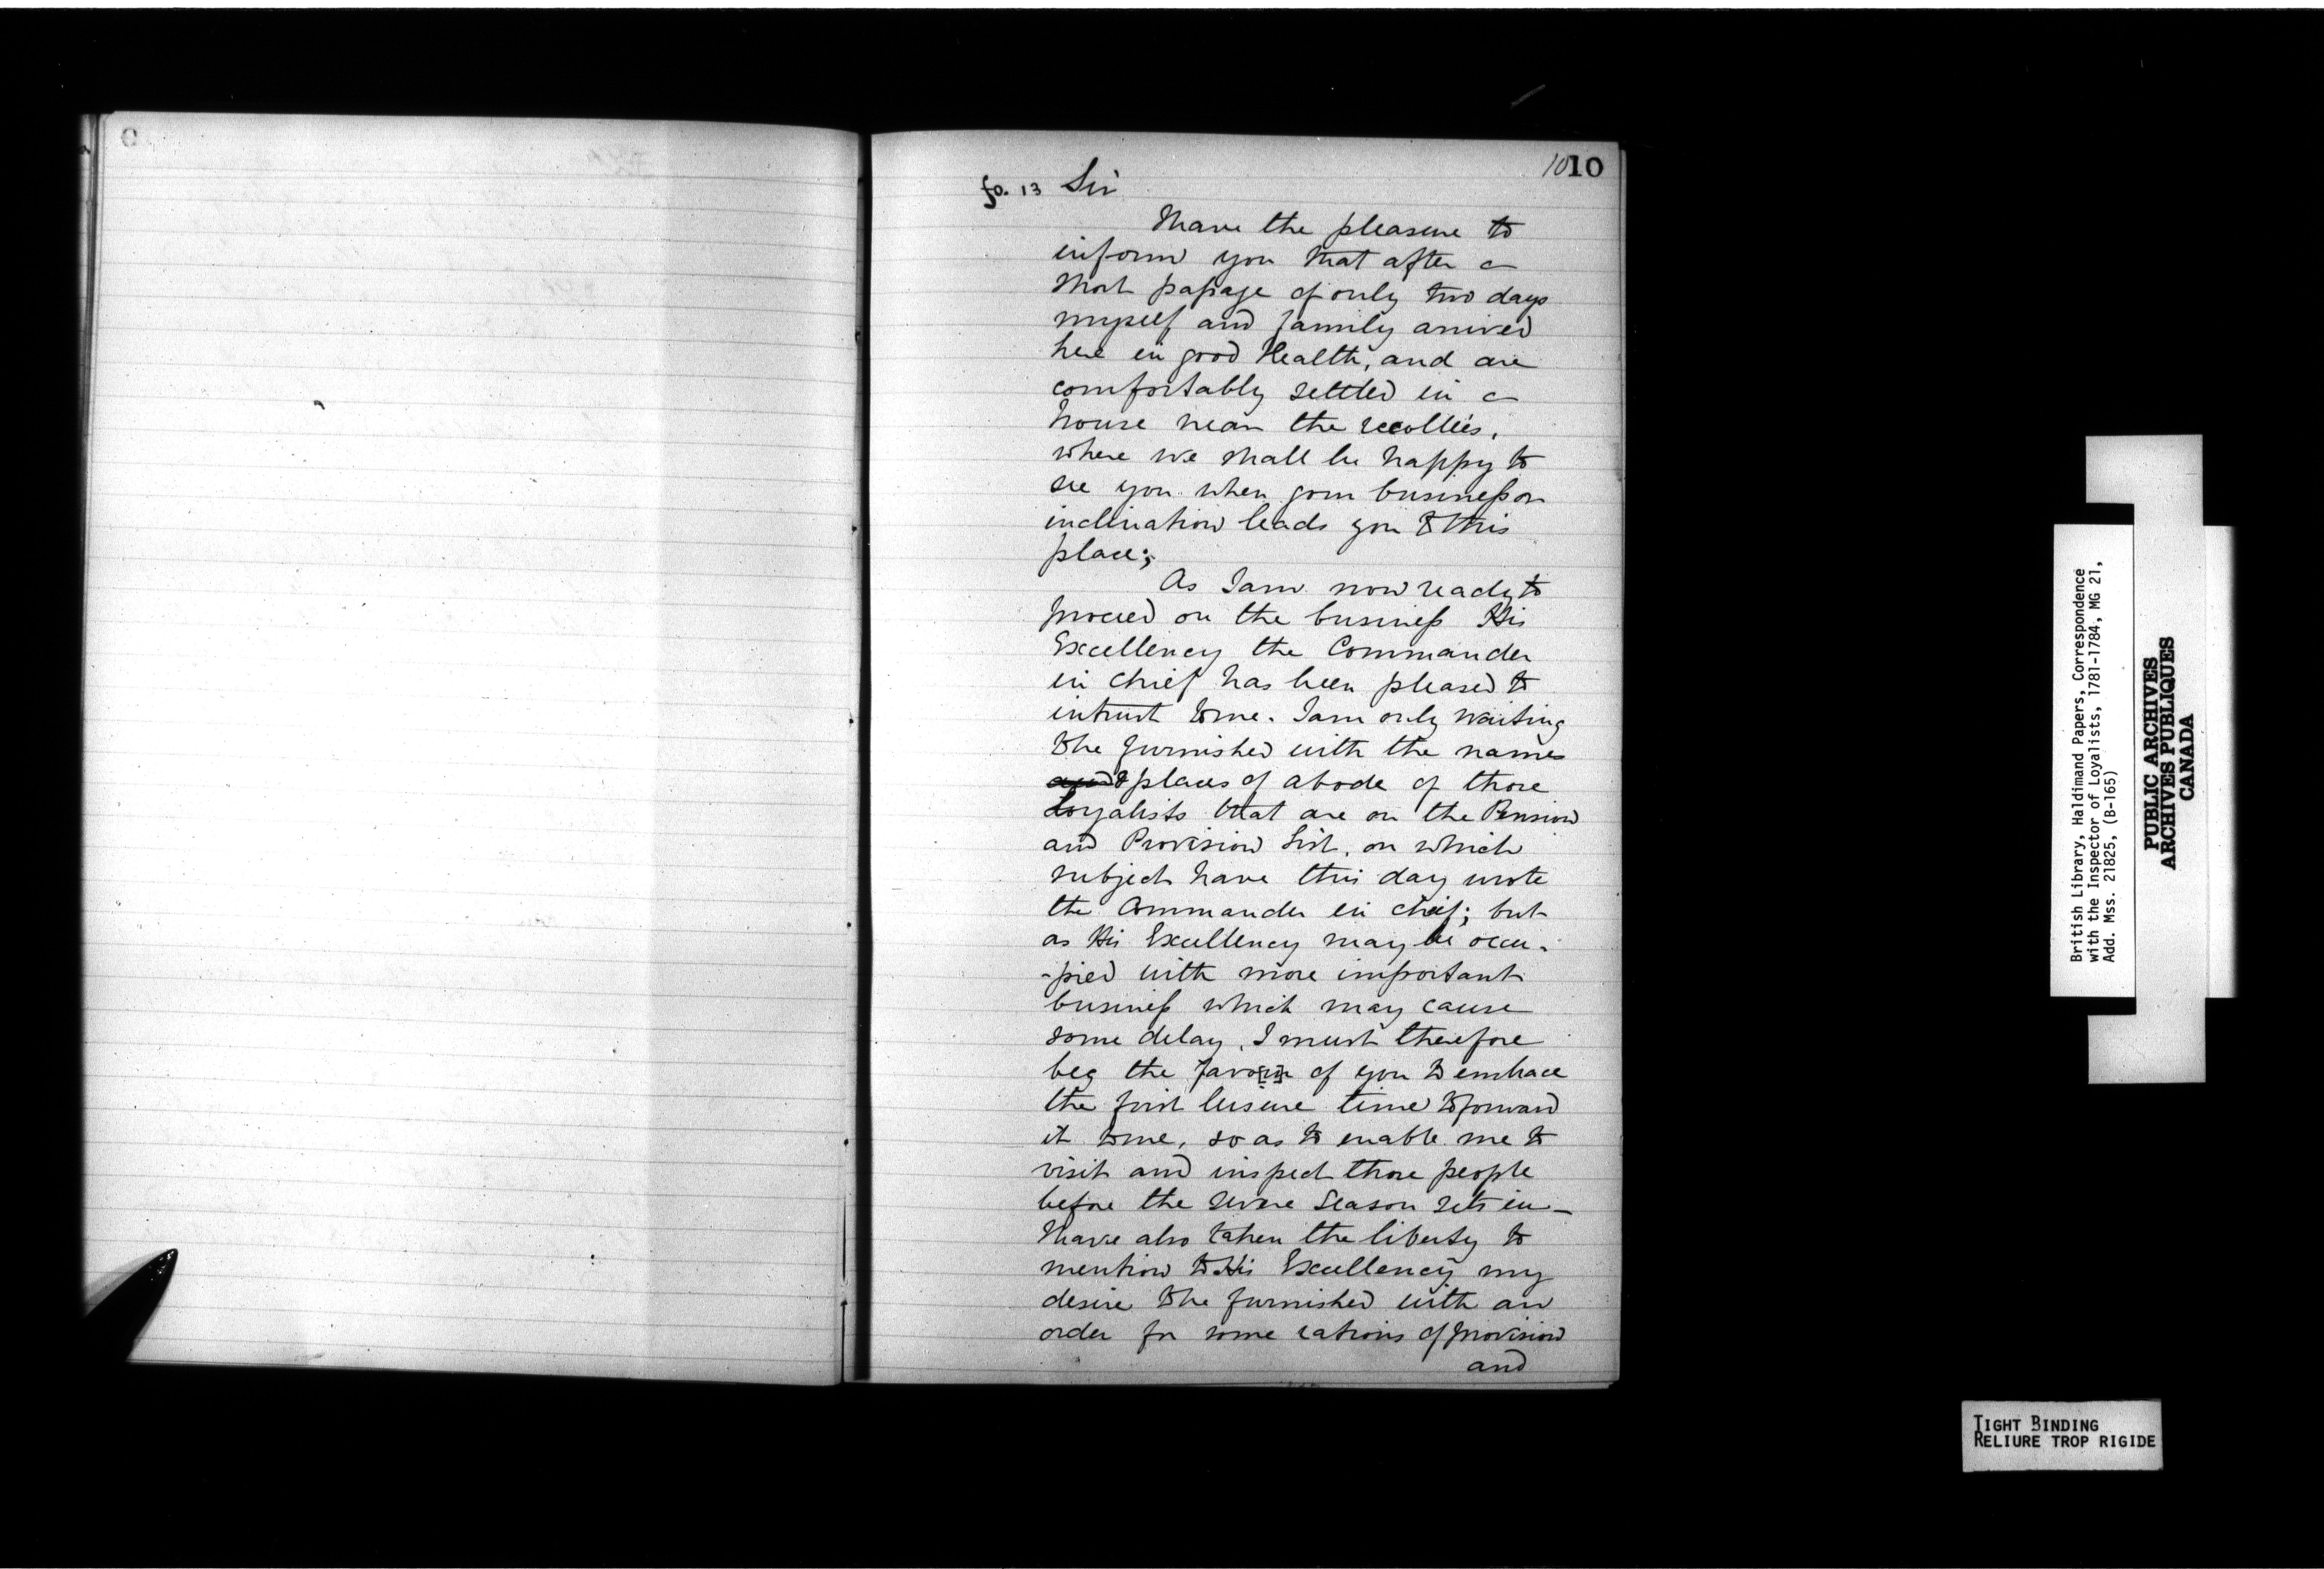 1010
fo. 13 Sir
I have the pleasure to
inform you that after a
short passage of only two days
myself and family arrived
here in good Health, and are
comfortably settled in a
house near the recollies,
where we shall be happy to
see you when your business or
inclination leads you to this
place;
As I am now ready to
proceed on the business His
Excellency the Commander
in chief has been pleased to
intrust to me. I am only waiting
to be furnished with the names
and & places of abode of those
Loyalists that are on the Pension
and Provision List, on which
subject have this day wrote
the Commander in chief; but
as His Excellency may be occu-
-pied with more important
business which may cause
some delay, I must therefore
beg the favo[u]r of you to embrace
the first leisure time to forward
it to me, so as to enable me to
visit and inspect those people
before the severe season sets in -
I have also taken the liberty to
mention to His Excellency my
desire to be furnished with an
order for some rations of provision
and
British Library, Haldimand Papers, Correspondence
with the Inspector of Loyalists, 1781-1784, MG 21,
Add. Mss. 21825, (B-165)
PUBLIC ARCHIVES
ARCHIVES PUBLIQUES
CANADA
TIGHT BINDING
RELIURE TROP RIGIDE